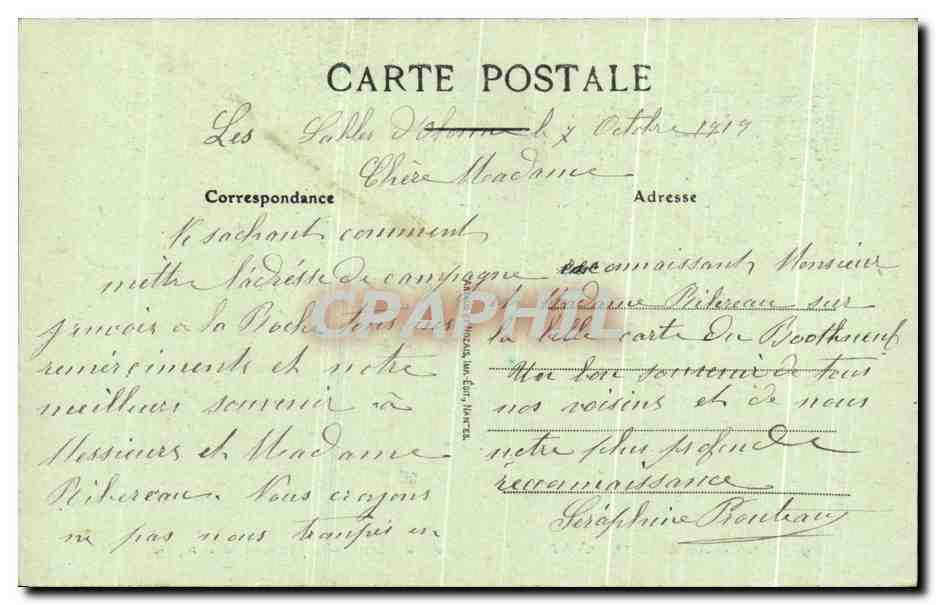 CARTE POSTALE
Les Sables d'Olonne le 7 Octobre 1919
Chère Madame
Correspondance
Adresse
Ne sachant comment
mettre l'adrésse de campagne
j'envoie à la Roche tous nos
remérciments et notre
meilleur souvenir à
Messieurs et Madame
Ribereau. Nous croyons
ne pas nous trompér en
ARNAUD & NOZAIS, IMP.-ÉDIT., NANTES.
connaissant, Monsieur
et Madame Ribereau sur
la belle carte du
Un bon souvenir de tous
nos voisins et de nous
notre plus profonde
réconnaissance
Séraphine Prouteau
CRAPHIL